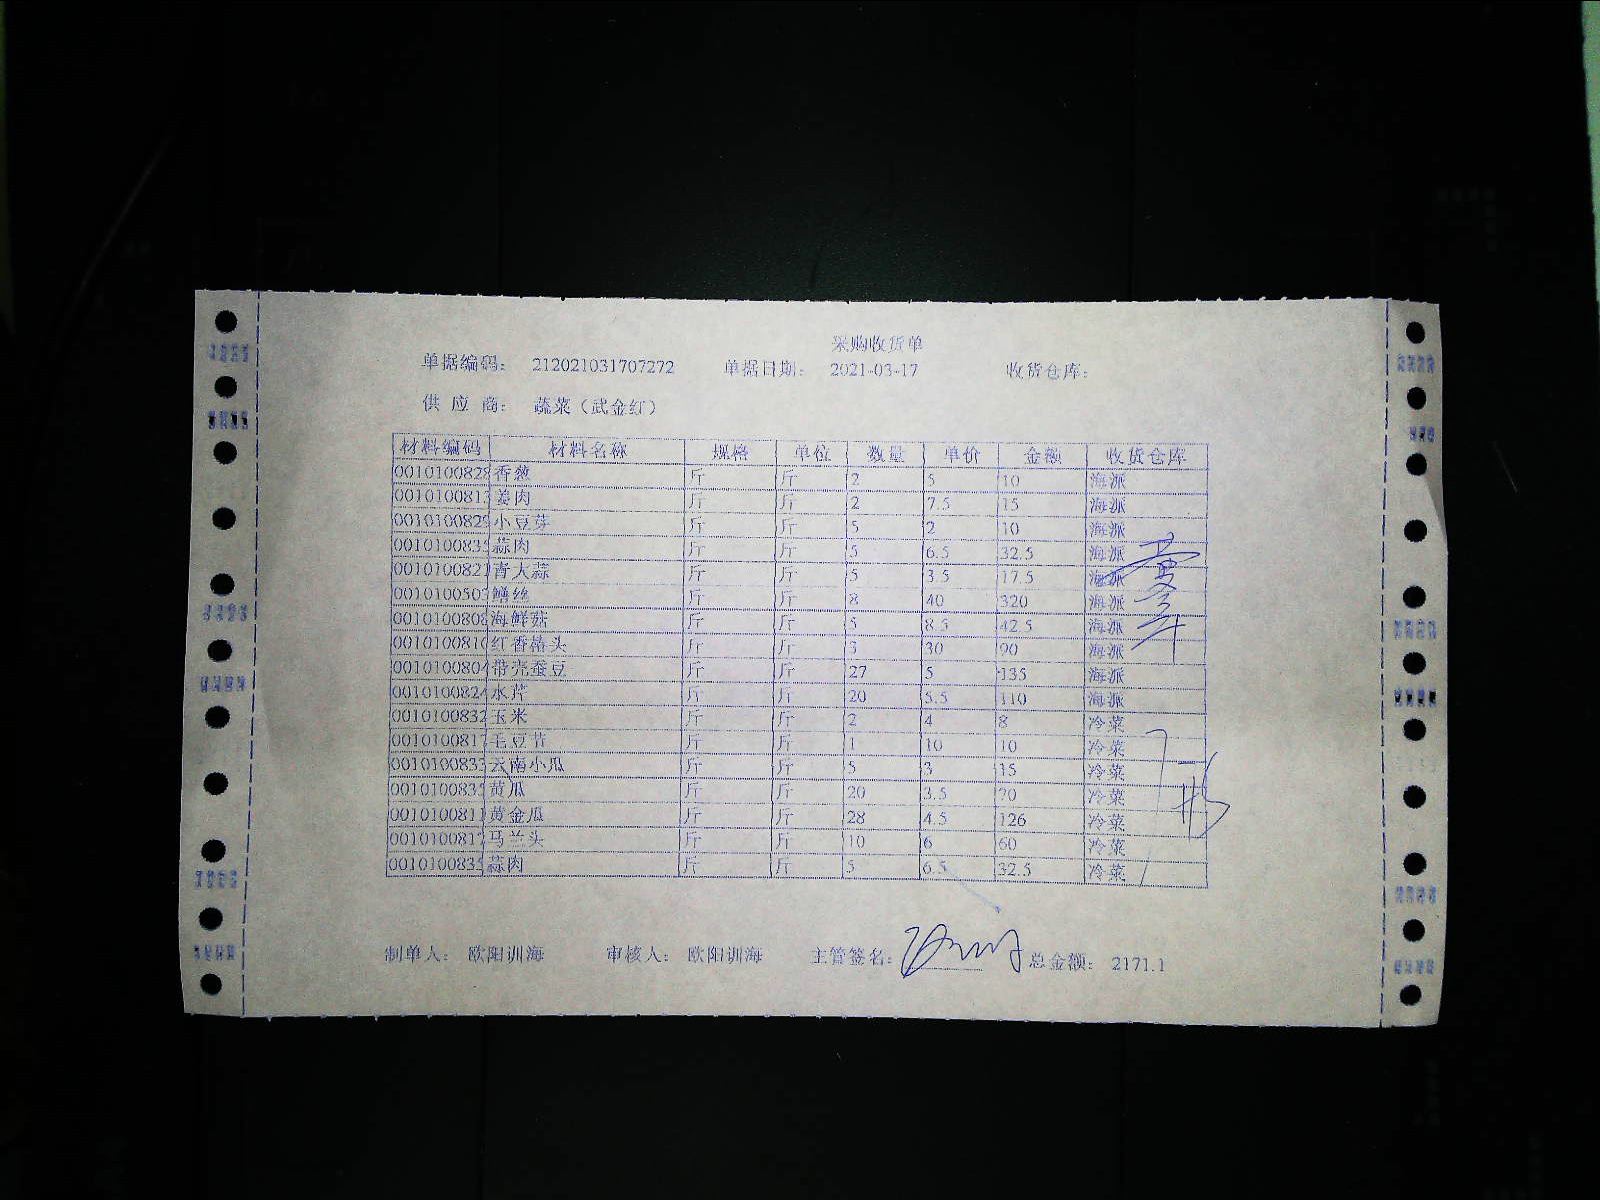 采购收货单
单据编码： 212021031707272 单据日期： 2021-03-17 收货仓库：
供 应 商： 蔬菜（武金红）
材料编码 材料名称 规格 单位 数量 单价 金额 收货仓库
0010100828 香葱 斤 斤 2 5 10 海派
0010100813 姜肉 斤 斤 2 7.5 15 海派
0010100829 小豆芽 斤 斤 5 2 10 海派
0010100835 蒜肉 斤 斤 5 6.5 32.5 海派
0010100821 青大蒜 斤 斤 5 3.5 17.5 海派
0010100503 鳝丝 斤 斤 8 40 320 海派
0010100808 海鲜菇 斤 斤 5 8.5 42.5 海派
0010100810 红香椿头 斤 斤 3 30 90 海派
0010100804 带壳蚕豆 斤 斤 27 5 135 海派
0010100824 水芹 斤 斤 20 5.5 110 海派
0010100832 玉米 斤 斤 2 4 8 冷菜
0010100817 毛豆节 斤 斤 1 10 10 冷菜
0010100833 云南小瓜 斤 斤 5 3 15 冷菜
0010100835 黄瓜 斤 斤 20 3.5 70 冷菜
0010100811 黄金瓜 斤 斤 28 4.5 126 冷菜
0010100817 马兰头 斤 斤 10 6 60 冷菜
0010100835 蒜肉 斤 斤 5 6.5 32.5 冷菜
制单人： 欧阳训海 审核人： 欧阳训海 主管签名： 总金额： 2171.1